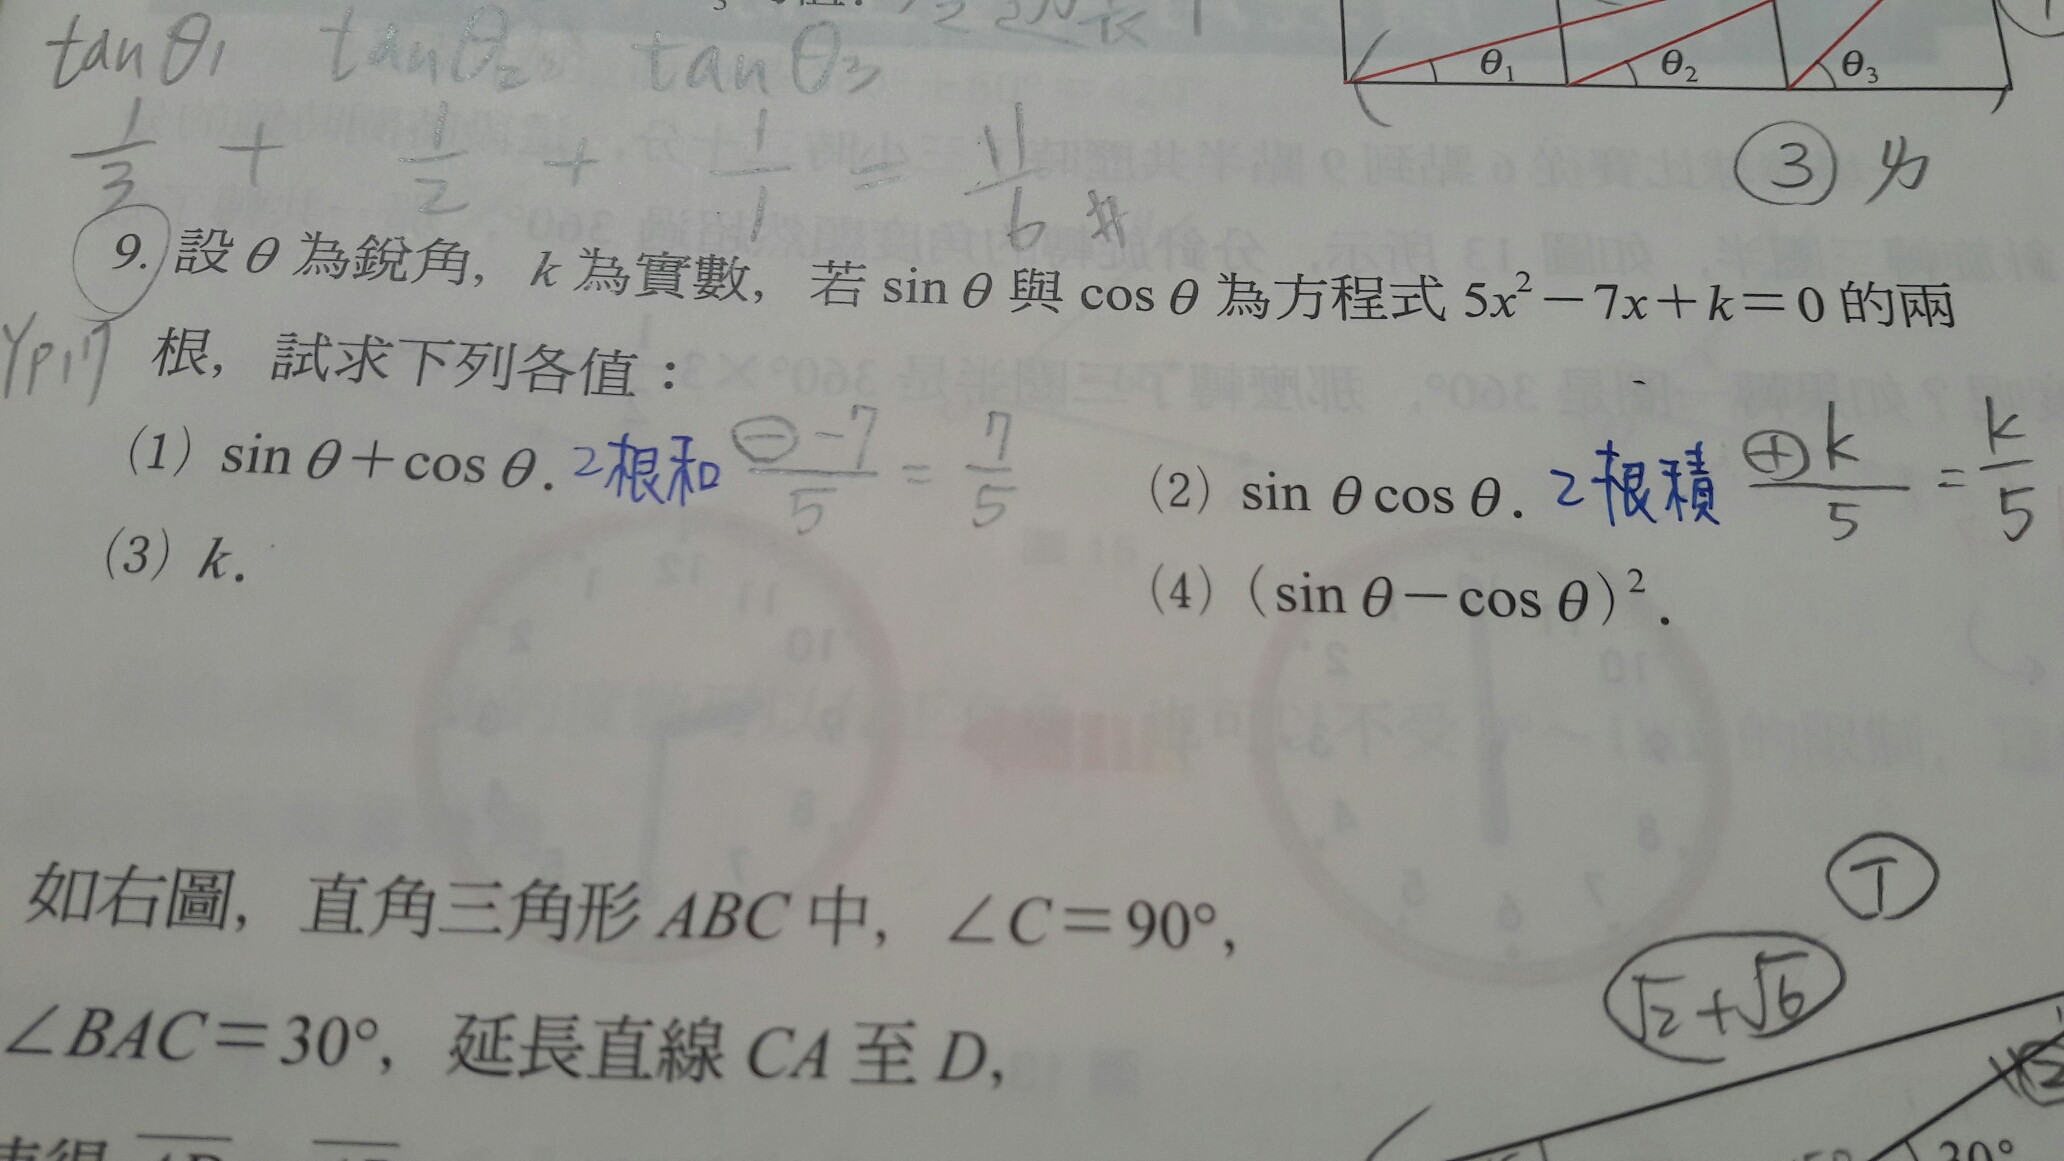 tanθ1 tanθ2 tanθ3
θ1 θ2 θ3
1/3 + 1/2 + 1/1 = 11/6 #
③
9. 設 θ 為銳角，k 為實數，若 sin θ 與 cos θ 為方程式 5x²－7x＋k＝0 的兩
根，試求下列各值：
(1) sin θ＋cos θ. 2根和 ⊖-7/5 = 7/5
(2) sin θ cos θ. 2根積 ⊕k/5 = k/5
(3) k.
(4) (sin θ－cos θ)².
如右圖，直角三角形 ABC 中，∠C＝90°，
√2+√6
∠BAC＝30°，延長直線 CA 至 D，
30°